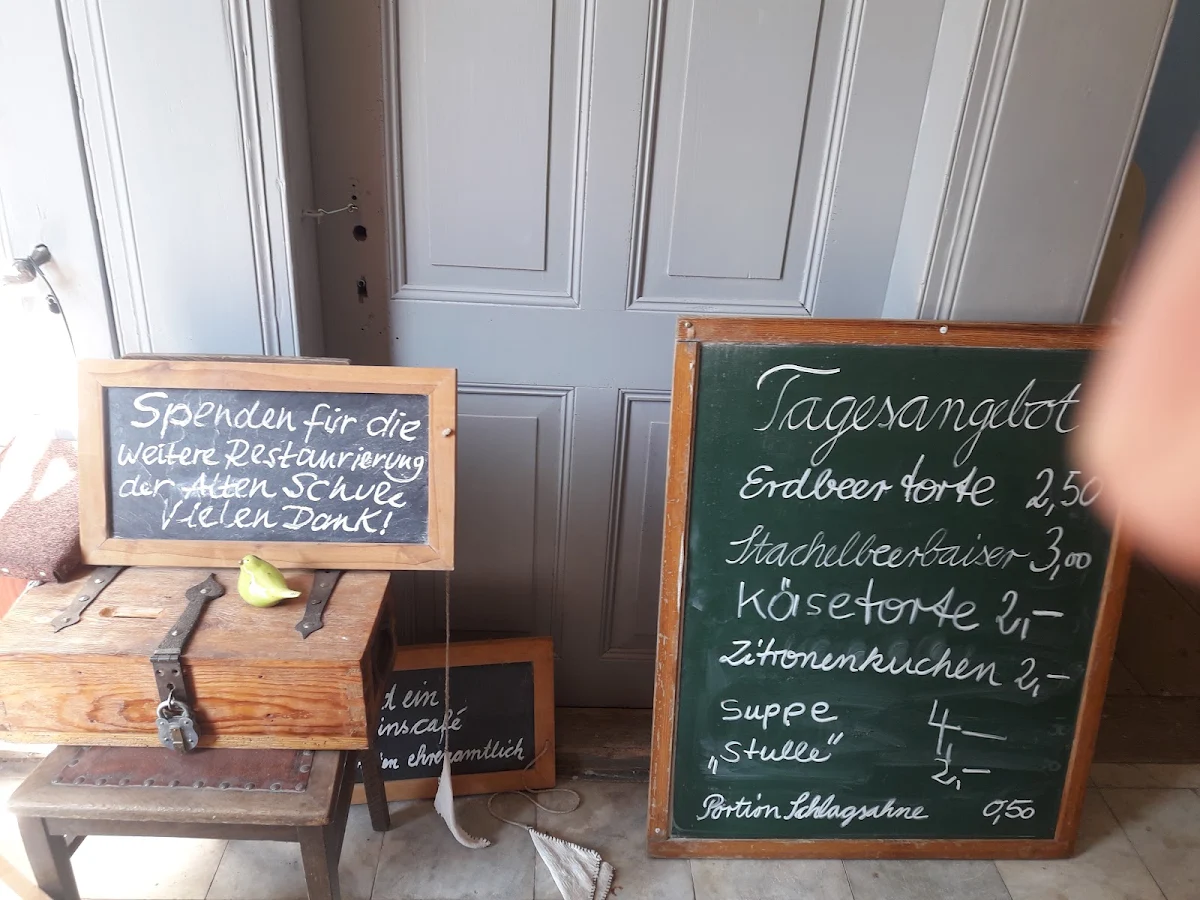 Spenden für die
weitere Restaurierung
der Alten Schule
Vielen Dank!
d ein
inscafé
en ehrenamtlich
Tagesangebot
Erdbeertorte 2,50
Stachelbeerbaiser 3,00
Käsetorte 2,-
Zitronenkuchen 2,-
Suppe 4,-
„Stulle“ 2,-
Portion Schlagsahne 0,50